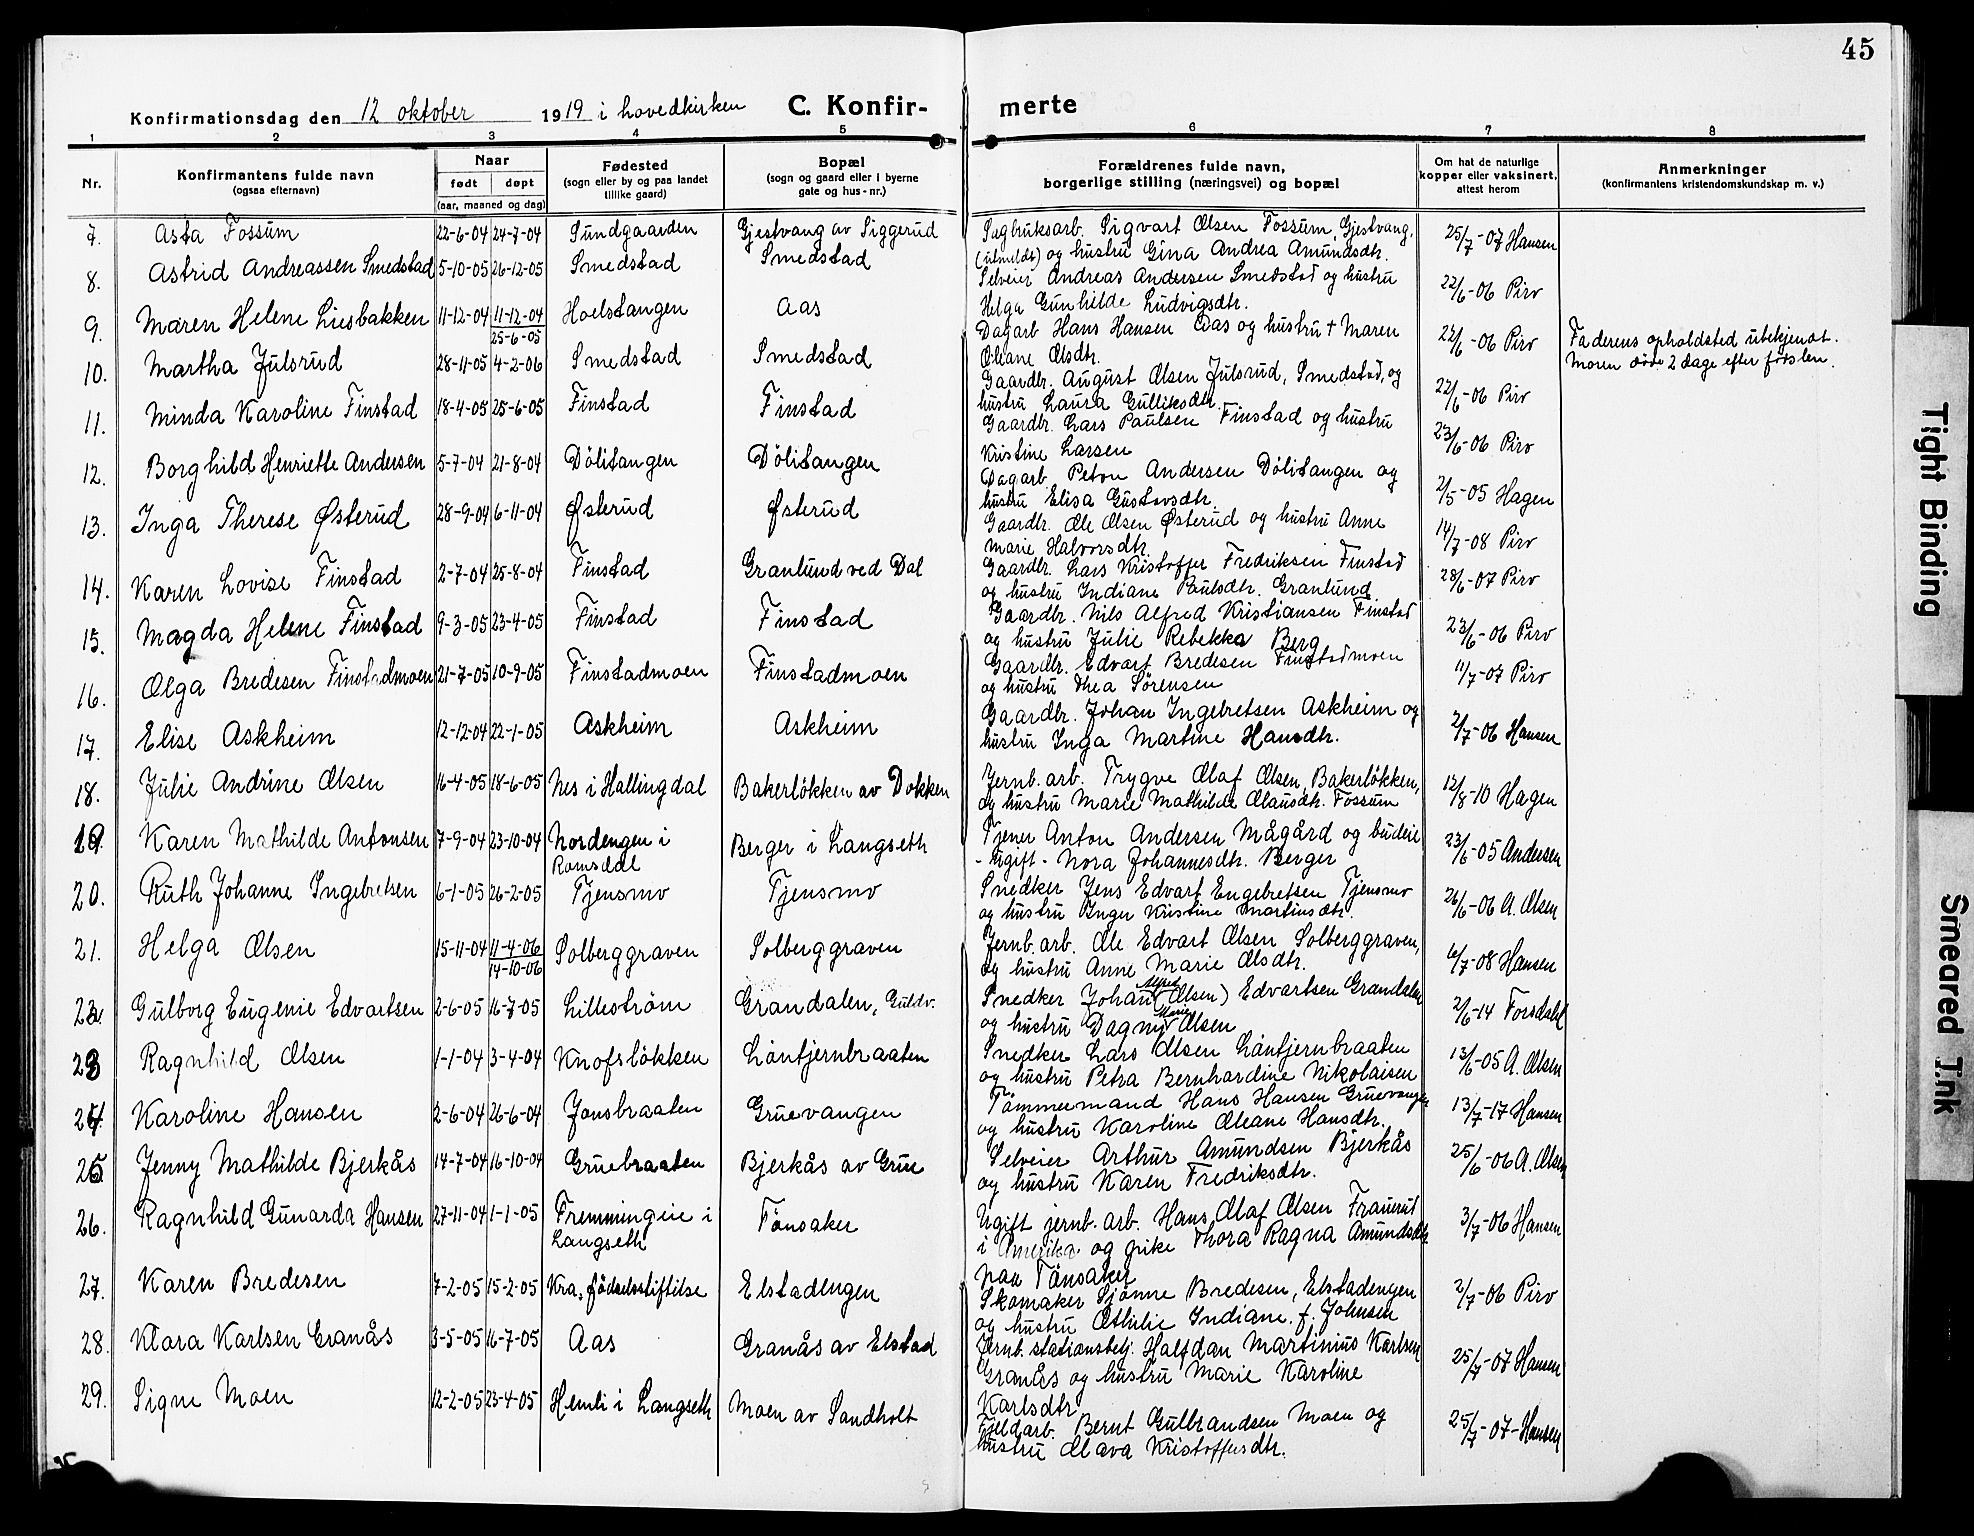 45
Konfirmationsdag den 12 oktober 1919 i hovedkirken C. Konfirmerte
1 2 3 4 5 6 7 8
Nr.
Konfirmantens fulde navn
(ogsaa efternavn)
Naar
født døpt
(aar, maaned og dag)
Fødested
(sogn eller by og paa landet
tillike gaard)
Bopæl
(sogn og gaard eller i byerne
gate og hus-nr.)
Forældrenes fulde navn,
borgerlige stilling (næringsvei) og bopæl
Om hat de naturlige
kopper eller vaksinert,
attest herom
Anmerkninger
(konfirmantens kristendomskundskap m. v.)
7. Asta Fossum 22-6-04 24-7-04 Sundgaarden Gjestvang av Siggerud Sagbruksarb. Sigvart Olsen Fossum, Gjestvang, 25/7-07 Hansen
(utmeldt) og hustru Gina Andrea Amundsdtr.
8. Astrid Andreassen Smedstad 5-10-05 26-12-05 Smedstad Smedstad Selveier Andreas Andersen Smedstad og hustru 22/6-06 Pirv
Helga Gunhilde Ludvigsdtr.
9. Maren Helene Liesbakken 11-12-04 11-12-04 Hoelstangen Aas Dagarb Hans Hansen Aas og hustru + Maren 22/6-06 Pirv Faderens opholdsted utekjendt.
25-6-05 Oleane Olsdtr. Moren døde 2 dage efter føsslen.
10. Martha Julsrud 28-11-05 4-2-06 Smedstad Smedstad Gaardbr. August Olsen Julsrud, Smedstad, og 22/6-06 Pirv
hustru Laura Gulliksdtr.
11. Minda Karoline Finstad 18-4-05 25-6-05 Finstad Finstad Gaardbr. Lars Paulsen Finstad og hustru 23/6-06 Pirv
Kristine Larsen
12. Borghild Henriette Andersen 5-7-04 21-8-04 Dölitangen Dölitangen Dagarb. Peton Andersen Dölitangen og 2/5-05 Hagen
hustru Elisa Gustavsdtr.
13. Inga Therese Østerud 28-9-04 6-11-04 Østerud Østerud Gaardbr. Ole Olsen Østerud og hustru Anne 14/7-08 Pirv
Marie Halvorsdtr.
14. Karen Lovise Finstad 2-7-04 25-8-04 Finstad Granlund ved Dal Gaardbr. Lars Kristoffer Fredriksen Finstad 28/6-07 Pirv
og hustru Indiane Paulsdtr. Granlund
15. Magda Helene Finstad 9-3-05 23-4-05 Finstad Finstad Gaardbr. Nils Alfred Kristiansen Finstad 23/6-06 Pirv
og hustru Julie Rebekka Berg
16. Olga Bredesen Finstadmoen 21-7-05 10-9-05 Finstadmoen Finstadmoen Gaardbr. Edvart Bredesen Finstadmoen 11/7-07 Pirv
og hustru Thea Sörensen
17. Elise Askheim 12-12-04 22-1-05 Askheim Askheim Gaardbr. Johan Ingebretsen Askheim og 2/7-06 Hansen
hustru Inga Martine Hansdtr.
18. Julie Andrine Olsen 16-4-05 18-6-05 Nes i Hallingdal Bakerlökken av Dokken Jernb. arb. Trygve Olaf Olsen, Bakerlökken, 12/8-10 Hagen
og hustru Marie Mathilde Olausdtr. Fossum
19. Karen Mathilde Antonsen 7-9-04 23-10-04 Nordengen i Berger i Langseth Tjener Anton Andersen Mågård og budeie 23/6-05 Andersen
Romsdal - Ugift - Nora Johannesdtr. Berger
20. Ruth Johanne Ingebretsen 6-1-05 26-2-05 Tjensmo Tjensmo Snedker Jens Edvart Engebretsen Tjensmo 26/6-06 A. Olsen
og hustru Inger Kristine Martinsdtr.
21. Helga Olsen 15-11-04 11-4-06 Solberggraven Solberggraven Jernb. arb. Ole Edvart Olsen Solberggraven, 6/7-08 Hansen
14-10-06 og hustru Anne Marie Olsdtr.
22. Gulborg Eugenie Edvartsen 2-6-05 16-7-05 Lillestrøm Grandalen, Guldv. Snedker Johan Olsen) Edvartsen Grandalen 2/6-14 Forsdahl
og hustru Dagny Marie Olsen
23 Ragnhild Olsen 1-1-04 3-4-04 Knofslökken Löntjernbraaten Snedker Lars Olsen Löntjernbraaten 13/6-05 A. Olsen
og hustru Petra Bernhardine Nikolaisen
24 Karoline Hansen 2-6-04 26-6-04 Jonsbraaten Gruevangen Tömmermand Hans Hansen Gruevangen 13/7-17 Hansen
og hustru Karoline Oleane Hansdtr.
25 Jenny Mathilde Bjerkås 14-7-04 16-10-04 Gruebraaten Bjerkås av Grue Selveier Arthur Amundsen Bjerkås 25/6-06 A. Olsen
og hustru Karen Fredriksdtr.
26. Ragnhild Gunarda Hansen 27-11-04 1-1-05 Fremmingeie i Tönsaker Ugift jernb. arb. Hans Olaf Olsen Frauerud 3/7-06 Hansen
Langseth i Amerika og pike Thora Ragna Amundsdtr
Nau Tönsaker
27. Karen Bredesen 7-2-05 15-2-05 Kra, födselsstiftelse Elstadengen Skomaker Sjönne Bredesen, Elstadengen 2/7-06 Pirv
og hustru Othilie Indiane f. Johnsen
28. Klara Karlsen Granås 3-5-05 16-7-05 Aas Granås av Elstad Jernb. stationsbetj. Halfdan Martinius Karlsen 25/7-07 Hansen
Granås og hustru Marie Karoline
Karlsdtr
29. Signe Moen 12-2-05 23-4-05 Hemli i Langseth Moen av Sandholt Fjeldarb. Bernt Gulbrandsen Moen og 25/7-07-Hansen
hustru Olava Kristoffersdtr.
Tight Binding
Smeared Ink